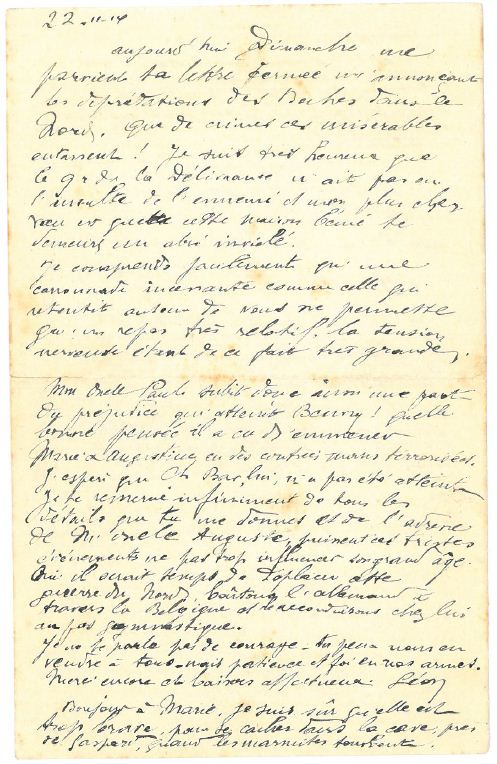 22-11-14
aujourd'hui Dimanche me
parvient ta lettre fermée m'annonçant
les déprédations des Boches dans le
Nord. Que de crimes ces misérables
entassent ! Je suis très heureux que
le 9 r de la Délivrance n'ait pas eu
l'insulte de l'ennemi et mon plus cher
vœu est que cette maison bénie te
demeure un abri inviolé.
Je comprends facilement qu'une
canonnade incessante comme celle qui
retentit autour de vous ne permette
qu'un repos très relatif. la tension
nerveuse étant de ce fait très grande.
Mon Oncle Paul subit donc aussi une part
du préjudice qui atteint Beuvry ! quelle
bonne pensée il a eu d'emmener
Marie à Augustine en des contrées moins terrorisées.
J'espère que Ch Bar, lui, n'a pas été atteint
Je te remercie infiniment de tous les
détails que tu me donnes et de l'adresse
de M. oncle Auguste, puissent ces tristes
événements ne pas trop influencer son grand âge.
Oui il serait temps de déplacer cette
guerre du Nord, battons l'allemand à
travers la Belgique et le reconduisons chez lui
au pas gymnastique.
Je ne te parle pas de courage - tu peux nous en
vendre à tous - mais patience et foi en nos armes.
Merci encore et baisers affectueux. Léon
Bonjour à Marie, je suis sûr qu'elle est
trop brave pour se cacher dans la cave, près
de Gaspard, quand les marmites tombent.